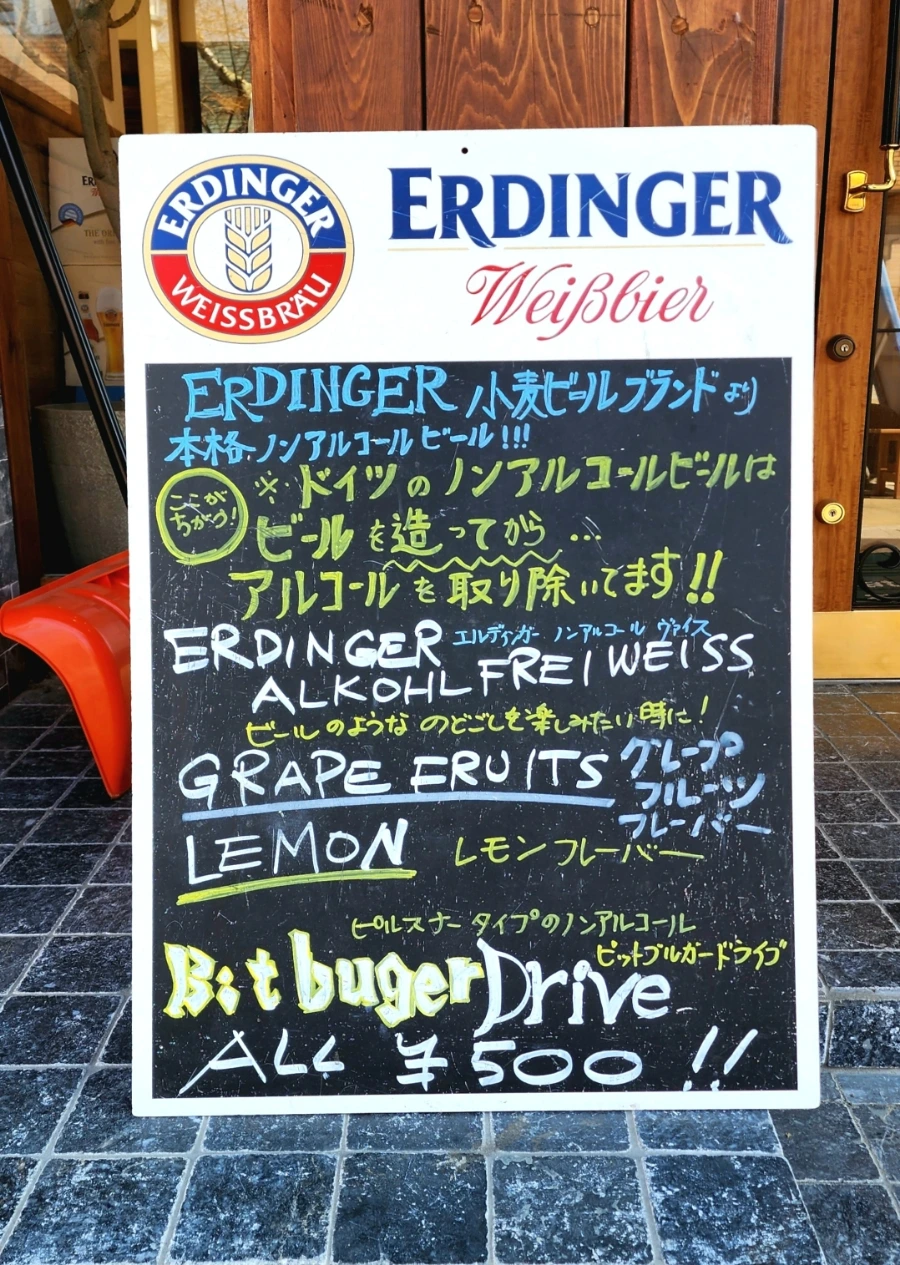 ERDINGER
WEISSBRÄU
ERDINGER
Weißbier
ERDINGER 小麦ビールブランドより
本格ノンアルコールビール!!!
ここが
ちがう!
※・ドイツのノンアルコールビールは
ビールを造ってから…
アルコールを取り除いてます!!
エルディンガー ノンアルコール ヴァイス
ERDINGER
ALKOHLFREI WEISS
ビールのような のどごしを楽しみたい時に!
GRAPE FRUITS
グレープ
フルーツ
フレーバー
LEMON レモンフレーバー
ピルスナータイプのノンアルコール
ビットブルガードライブ
Bitbuger Drive
ALL ¥500!!